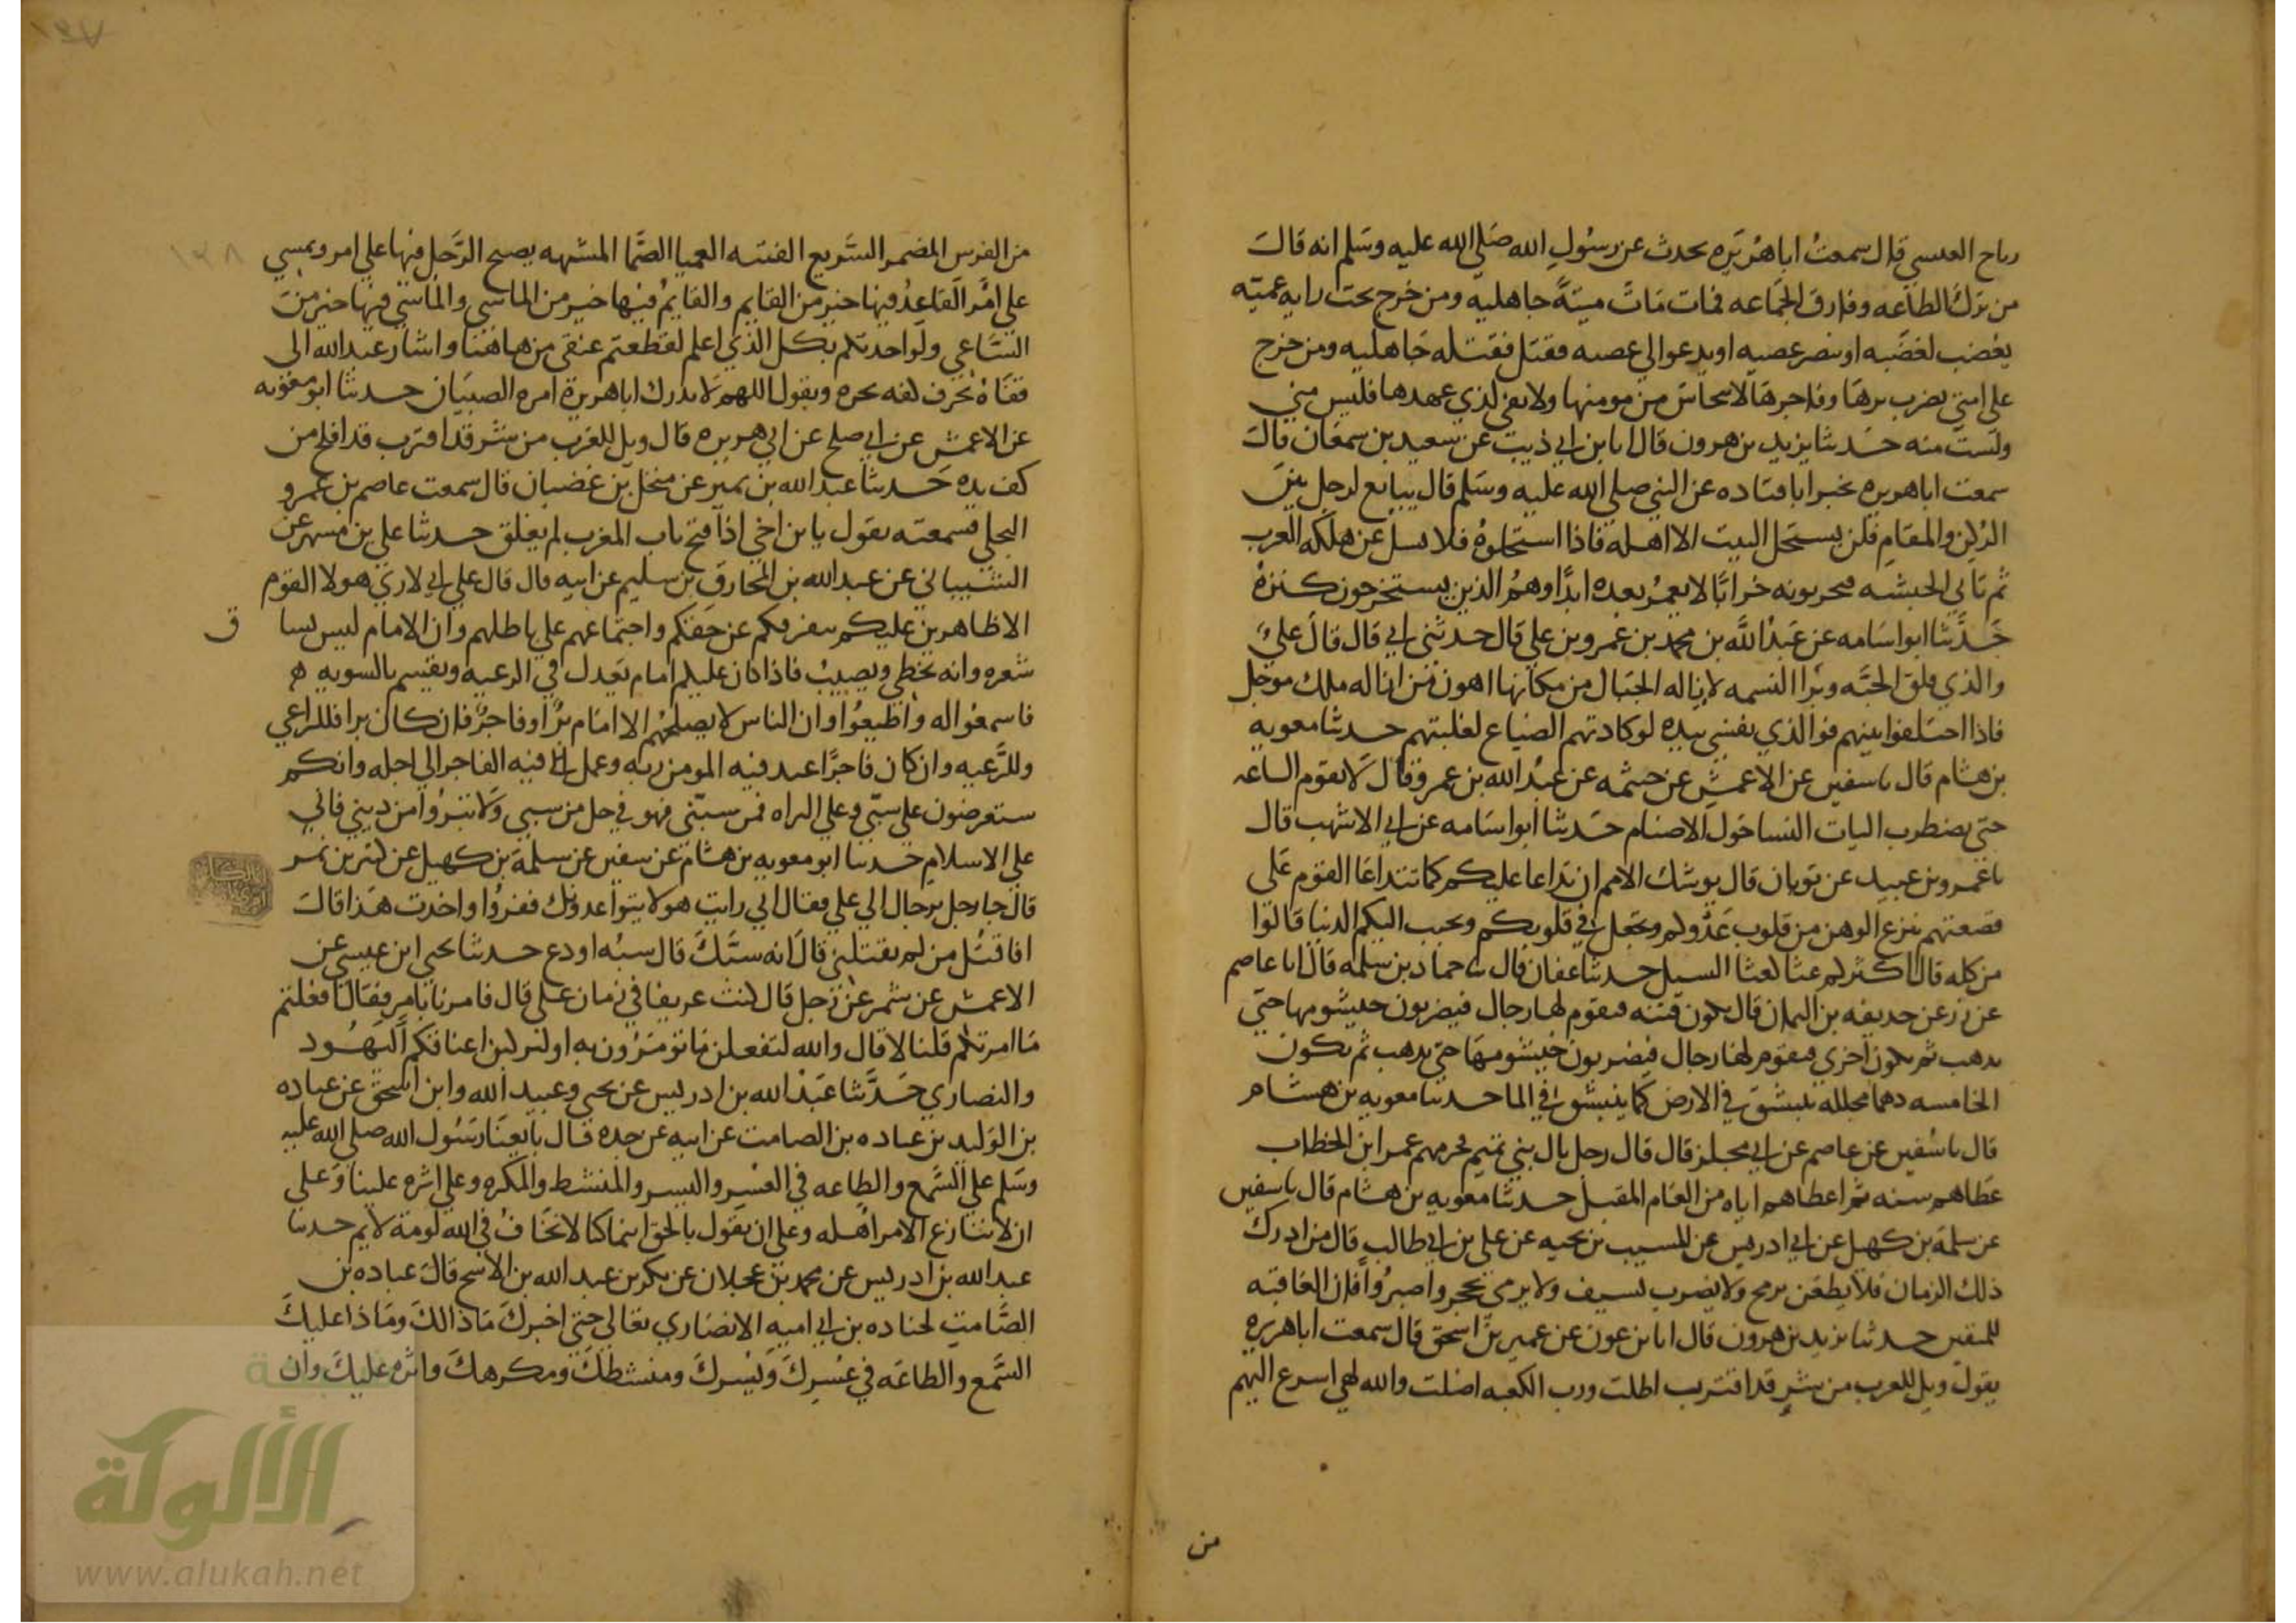 رباح العدسي قال سمعت اباهريره يحدث عن رسول الله صلي الله عليه وسلم انه قال
من ترك الطاعه وفارق الجماعه فمات مات ميتة جاهليه ومن خرج تحت رايه عميه
يغضب لغضبه او ينصر عصبه او يدعوا الي عصبه فقتل فقتله جاهليه ومن خرج
علي امتي يضرب برها وفاجرها لا يتحاش من مومنها ولا يفي لذي عهدها فليس مني
ولست منه حدثنا يزيد بن هرون قال انا بن ابي ذيب عن سعيد بن سمعان قال
سمعت اباهريره يخبر ابا قتاده عن النبي صلي الله عليه وسلم قال يبايع لرجل بين
الركن والمقام فلن يستحل البيت الا اهله فاذا استحلوه فلا تسل عن هلكه العرب
ثم تاتي الحبشه فيخربونه خرابا لا يعمر بعده ابدا وهم الذين يستخرجون كنزه
حدثنا ابو اسامه عن عبد الله بن محمد بن عمرو بن علي قال حدثني ابي قال قال علي
والذي فلق الحبه وبرا النسمه لازاله الجبال من مكانها اهون من ازاله ملك موجل
فاذا اختلفوا بينهم فوالذي نفسي بيده لو كادتهم الضباع لغلبتهم حدثنا معويه
بن هشام قال نا سفين عن الاعمش عن خيثمه عن عبد الله بن عمرو قال لا تقوم الساعه
حتي يضطرب اليات النسا حول الاصنام حدثنا ابو اسامه عن ابي الاشهب قال
نا عمرو بن عبيد عن ثوبان قال يوشك الامم ان تداعا عليكم كما تتداعا القوم علي
قصعتهم ينزع الوهن من قلوب عدوكم ويجعل في قلوبكم ويحبب اليكم الدنيا قالوا
من قله قال اكثركم غثا كغثا السيل حدثنا عفان قال نا حماد بن سلمه قال انا عاصم
عن زر عن حذيفه بن اليمان قال تكون فتنه فيقوم لها رجال فيضربون خيشومها حتي
يذهب ثم تكون اخري فيقوم لها رجال فيضربون خيشومها حتي يذهب ثم تكون
الخامسه دهما مجلله تنبشق في الارض كما ينبشق في الما حدثنا معويه بن هشام
قال نا سفين عن عاصم عن ابي مجلز قال قال رجل يال بني تميم فحرمهم عمر ابن الخطاب
عطاهم سنه ثم اعطاهم اياه من العام المقبل حدثنا معويه بن هشام قال نا سفين
عن سلمه بن كهيل عن ابي ادريس عن المسيب بن نجيه عن علي بن ابي طالب قال من ادرك
ذلك الزمان فلا يطعن برمح ولا يضرب بسيف ولا يرمي بحجر واصبروا فان العاقبه
للمتقين حدثنا يزيد بن هرون قال انا بن عون عن عمير بن اسحق قال سمعت اباهريره
يقول ويل للعرب من شر قد اقترب اطلت ورب الكعبه اطلت والله لهي اسرع اليهم
من
١٣٨
من الفرس المضمر السريع الفتنه العميا الصما المشبهه يصبح الرجل فيها علي امر ويمسي
علي امر القاعد فيها خير من القايم والقايم فيها خير من الماشي والماشي فيها خير من
الساعي ولو احدثكم بكل الذي اعلم لقطعتم عنقي من هاهنا واشار عبد الله الي
قفاه بحرف كفه يحره ويقول اللهم لا يدرك اباهريرة امره الصبيان حدثنا ابو معويه
عن الاعمش عن ابي صلح عن ابي هريره قال ويل للعرب من شر قد اقترب قد افلح من
كف يده حدثنا عبد الله بن نمير عن منخل بن غضبان قال سمعت عاصم بن عمرو
البجلي فسمعته يقول يا بن اخي اذا فتح باب المغرب لم يغلق حدثنا علي بن مسهر عن
الشيباني عن عبد الله بن المخارق بن سليم عن ابيه قال قال علي اني لا اري هولا القوم
الا ظاهرين عليكم بتفرقكم عن حقكم واجتماعهم علي باطلهم وان الامام ليس بسا
ق
شعره وانه يخطي ويصيب فاذا كان عليكم امام يعدل في الرعيه ويقسم بالسويه
فاسمعوا له واطيعوا وان الناس لا يصلحهم الا امام بر او فاجر فان كان برا فللراعي
وللرعيه وان كان فاجرا عبد فيه المومن ربه وعمل فيه الفاجر الي اجله وانكم
ستعرضون علي سبي وعلي البراه فمن سبني فهو في حل من سبي ولا تبروا من ديني فاني
علي الاسلام حدثنا ابو معويه بن هشام عن سفين عن سلمة بن كهيل عن كثير بن نمر
قال جا رجل برجال الي علي فقال اني رايت هولا يتواعدونك ففروا واخذت هذا قال
افاقتل من لم يقتلني قال انه سبك قال سبه او دع حدثنا يحي ابن عيسي عن
الاعمش عن شمر عن رجل قال كنت عريفا في زمان علي قال فامرنا بامر فقال افعلتم
ما امرتكم قلنا لا قال والله لتفعلن ما تومرون به او لتركبن اعناقكم اليهود
والنصاري حدثنا عبد الله بن ادريس عن يحي وعبيد الله وابن اسحق عن عباده
بن الوليد بن عباده بن الصامت عن ابيه عن جده قال بايعنا رسول الله صلي الله عليه
وسلم علي السمع والطاعه في العسر واليسر والمنشط والمكره وعلي اثره علينا وعلي
ان لا ننازع الامر اهله وعلي ان نقول بالحق اينما كنا لا نخاف في الله لومة لايم حدثنا
عبد الله بن ادريس عن محمد بن عجلان عن بكر بن عبد الله بن الاشج قال قال عباده بن
الصامت لجناده بن ابي اميه الانصاري تعالي حتي اخبرك ماذا لك وماذا عليك
السمع والطاعه في عسرك ويسرك ومنشطك ومكرهك واثره عليك وان
الألوكة
www.alukah.net